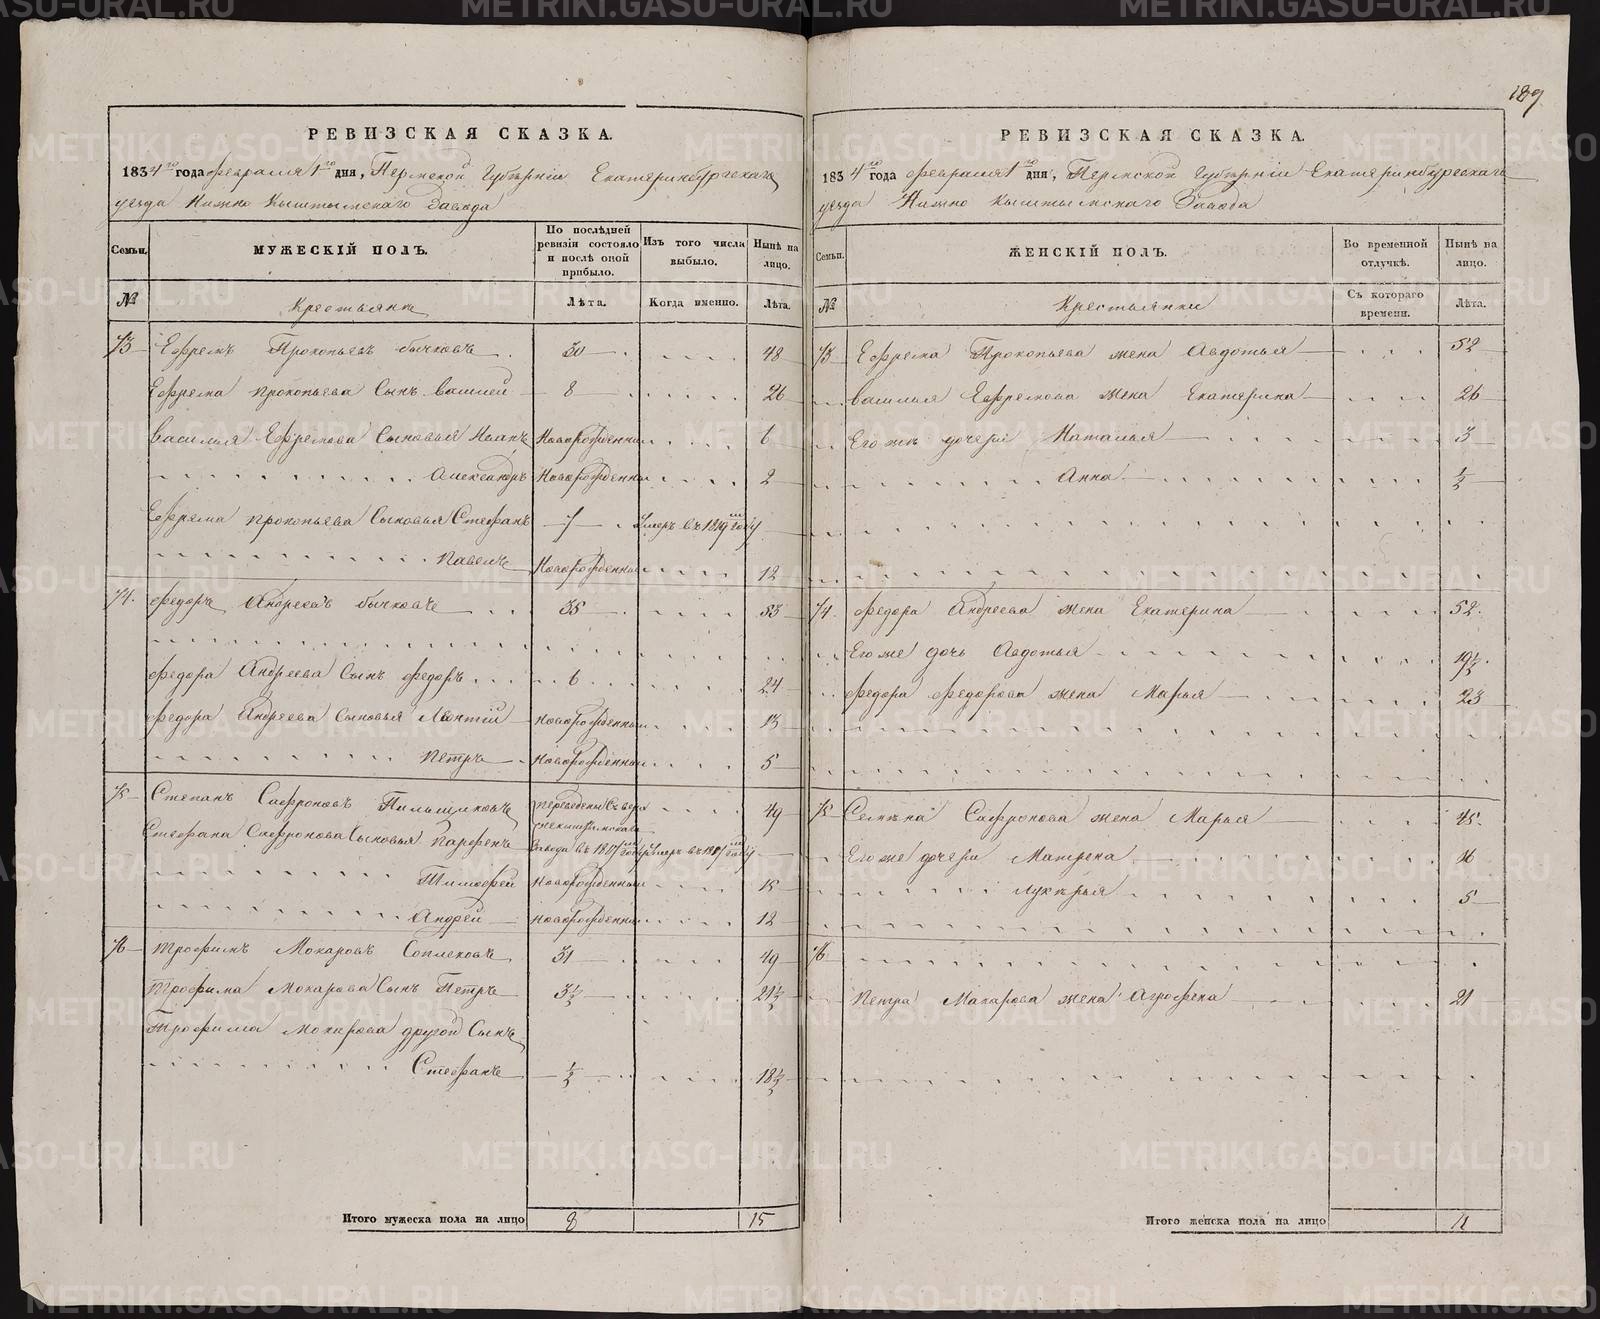 189
РЕВИЗСКАЯ СКАЗКА.
1834го года февраля 1го дня, Пермской Губерніи Екатеринбургскаго
уезда Нижно Кыштымскаго Завода
Семьи. МУЖЕСКІЙ ПОЛЪ. По послѣдней ревизіи состояло и послѣ оной прибыло. Изъ того числа выбыло. Нынѣ на лицо.
№ Крестьяне Лѣта. Когда именно. Лѣта.
73 Ефремъ Прокопьевъ Бычковъ 30 48
Ефрема Прокопьева Сынъ Василей 8 26
Василья Ефремова Сыновья Иванъ Новорожденный 6
Александръ Новорожденный 2
Ефрема Прокопьева Сыновья Стефанъ 7 Умеръ въ 1819м году
Павелъ Новорожденный 12
74. Федоръ Андреевъ Бычковъ 35 53
Федора Андреева Сынъ Федоръ 6 24
Федора Андреева Сыновья Леонтій Новорожденный 13
Петръ Новорожденный 5
75 Степанъ Сафроновъ Пильщиковъ переведены Съ верх 49
Стефана Сафронова Сыновья Парфенъ Завода въ 1817м году Умеръ въ
Тимофей Новорожденный 15
Андрей Новорожденный 12
76 Трофимъ Мокаровъ Соплековъ 31 49
Трофима Мокарова Сынъ Петръ 3½ 21½
Трофима Мокарова другой Сынъ
Стефанъ ½ 18½
Итого мужеска пола на лицо 8 15
РЕВИЗСКАЯ СКАЗКА.
1834го года февраля 1го дня, Пермской Губерніи Екатеринбургскаго
уезда Нижно Кыштымскаго Завода
Семьи. ЖЕНСКІЙ ПОЛЪ. Во временной отлучкѣ. Нынѣ на лицо.
№ Крестьянки Съ котораго времени. Лѣта.
73 Ефрема Прокопьева жена Авдотья 52
Василья Ефремова жена Екатерина 26
Его же дочери Наталья 3
Анна ½
74. Федора Андреева жена Екатерина 52.
Его же дочь Авдотья 19½.
Федора Федорова жена Марья 23
75 Сафронова жена Марья 45.
Его же дочери Матрена 16
Лукерья 5
76
Петра Макарова жена Агрофена 21
Итого женска пола на лицо 11
METRIKI.GASO-URAL.RU